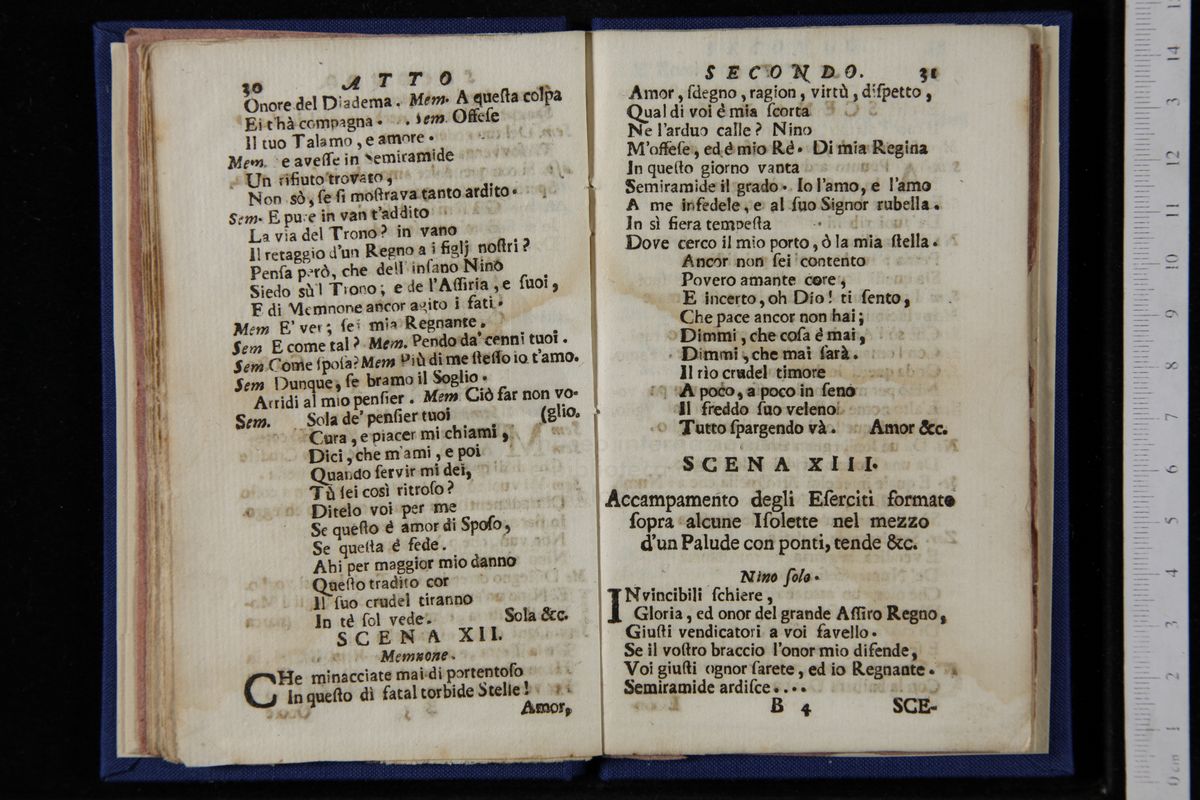 30 ATTO
Onore del Diadema. Mem. A queſta colpa
Ei t'hà compagna. Sem. Offeſe
Il tuo Talamo, e amore.
Mem. e aveſſe in Semiramide
Un rifiuto trovato,
Non sò, ſe ſi moſtrava tanto ardito.
Sem. E pure in van t'addito
La via del Trono? in vano
Il retaggio d'un Regno a i figlj noſtri?
Penſa però, che dell' inſano Nino
Siedo sù'l Trono; e de l'Aſſiria, e ſuoi,
E di Memnone ancor agito i fati.
Mem E' ver; ſei mia Regnante.
Sem E come tal? Mem. Pendo da' cenni tuoi.
Sem Come ſpoſa? Mem Più di me ſteſſo io t'amo.
Sem Dunque, ſe bramo il Soglio.
Arridi al mio penſier. Mem Ciò far non vo-
(glio.
Sem. Sola de' penſier tuoi
Cura, e piacer mi chiami,
Dici, che m'ami, e poi
Quando ſervir mi dei,
Tù ſei così ritroſo?
Ditelo voi per me
Se queſto è amor di Spoſo,
Se queſta è fede.
Ahi per maggior mio danno
Queſto tradito cor
Il ſuo crudel tiranno
In tè ſol vede. Sola &c.
SCENA XII.
Memnone.
CHe minacciate mai di portentoſo
In queſto dì fatal torbide Stelle!
Amor,
SECONDO. 31
Amor, ſdegno, ragion, virtù, diſpetto,
Qual di voi è mia ſcorta
Ne l'arduo calle? Nino
M'offeſe, ed è mio Rè. Di mia Regina
In queſto giorno vanta
Semiramide il grado. Io l'amo, e l'amo
A me infedele, e al ſuo Signor rubella.
In sì fiera tempeſta
Dove cerco il mio porto, ò la mia ſtella.
Ancor non ſei contento
Povero amante core,
E incerto, oh Dio! ti ſento,
Che pace ancor non hai;
Dimmi, che coſa è mai,
Dimmi, che mai ſarà.
Il rìo crudel timore
A poco, a poco in ſeno
Il freddo ſuo veleno
Tutto ſpargendo và. Amor &c.
SCENA XIII.
Accampamento degli Eſerciti formato
ſopra alcune Iſolette nel mezzo
d'un Palude con ponti, tende &c.
Nino ſolo.
INvincibili ſchiere,
Gloria, ed onor del grande Aſſiro Regno,
Giuſti vendicatori a voi favello.
Se il voſtro braccio l'onor mio difende,
Voi giuſti ognor ſarete, ed io Regnante.
Semiramide ardiſce....
B 4 SCE-